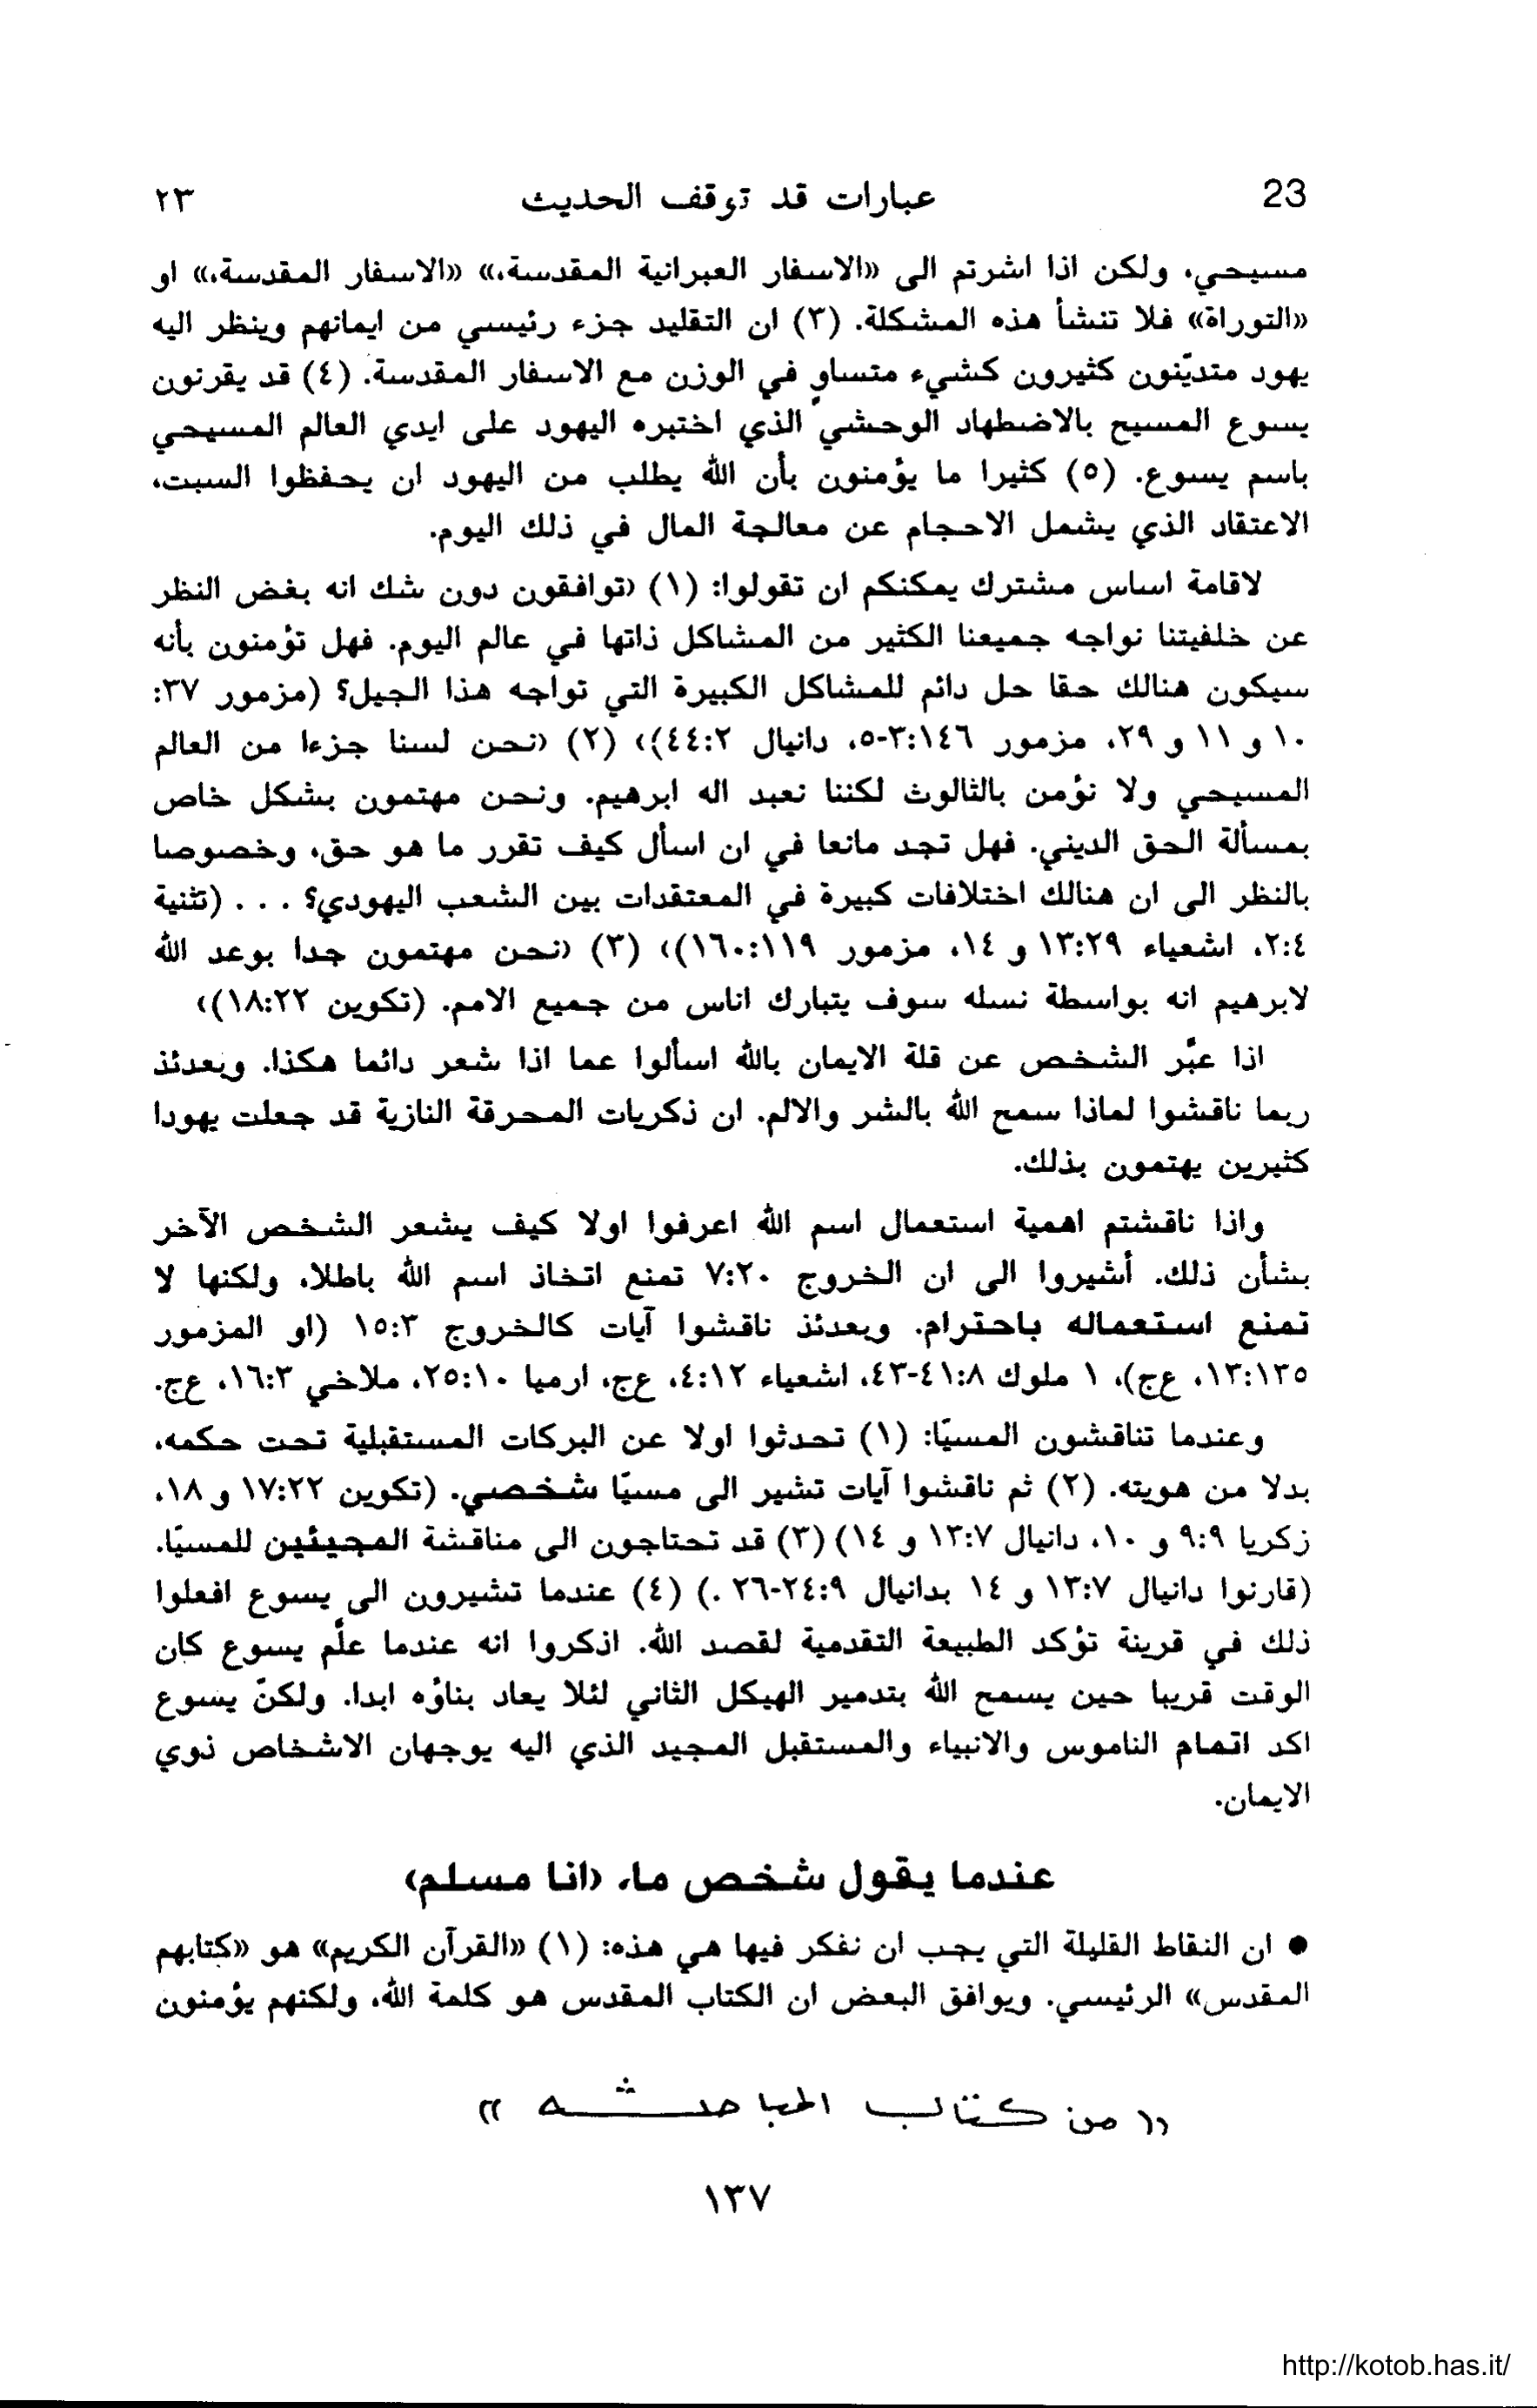 23 عبارات قد توقف الحديث ٢٣
مسيحي، ولكن اذا اشرتم الى «الاسفار العبرانية المقدسة،» «الاسفار المقدسة،» او
«التوراة» فلا تنشأ هذه المشكلة. (٣) ان التقليد جزء رئيسي من ايمانهم وينظر اليه
يهود متديّنون كثيرون كشيء متساوٍ في الوزن مع الاسفار المقدسة. (٤) قد يقرنون
يسوع المسيح بالاضطهاد الوحشي الذي اختبره اليهود على ايدي العالم المسيحي
باسم يسوع. (٥) كثيرا ما يؤمنون بأن الله يطلب من اليهود ان يحفظوا السبت،
الاعتقاد الذي يشمل الاحجام عن معالجة المال في ذلك اليوم.
لاقامة اساس مشترك يمكنكم ان تقولوا: (١) ‹توافقون دون شك انه بغض النظر
عن خلفيتنا نواجه جميعنا الكثير من المشاكل ذاتها في عالم اليوم. فهل تؤمنون بأنه
سيكون هنالك حقا حل دائم للمشاكل الكبيرة التي تواجه هذا الجيل؟ (مزمور ٣٧:
١٠ و ١١ و ٢٩، مزمور ١٤٦:٣-٥، دانيال ٢:٤٤)› (٢) ‹نحن لسنا جزءا من العالم
المسيحي ولا نؤمن بالثالوث لكننا نعبد اله ابرهيم. ونحن مهتمون بشكل خاص
بمسألة الحق الديني. فهل تجد مانعا في ان اسأل كيف تقرر ما هو حق، وخصوصا
بالنظر الى ان هنالك اختلافات كبيرة في المعتقدات بين الشعب اليهودي؟ . . . (تثنية
٤:٢، اشعياء ٢٩:١٣ و ١٤، مزمور ١١٩:١٦٠)› (٣) ‹نحن مهتمون جدا بوعد الله
لابرهيم انه بواسطة نسله سوف يتبارك اناس من جميع الامم. (تكوين ٢٢:١٨)›
اذا عبَّر الشخص عن قلة الايمان بالله اسألوا عما اذا شعر دائما هكذا. وبعدئذ
ربما ناقشوا لماذا سمح الله بالشر والالم. ان ذكريات المحرقة النازية قد جعلت يهودا
كثيرين يهتمون بذلك.
واذا ناقشتم اهمية استعمال اسم الله اعرفوا اولا كيف يشعر الشخص الآخر
بشأن ذلك. أشيروا الى ان الخروج ٢٠:٧ تمنع اتخاذ اسم الله باطلا، ولكنها لا
تمنع استعماله باحترام. وبعدئذ ناقشوا آيات كالخروج ٣:١٥ (او المزمور
١٣٥:١٣، ع‌ج)، ١ ملوك ٨:٤١-٤٣، اشعياء ١٢:٤، ع‌ج، ارميا ١٠:٢٥، ملاخي ٣:١٦، ع‌ج.
وعندما تناقشون المسيّا: (١) تحدثوا اولا عن البركات المستقبلية تحت حكمه،
بدلا من هويته. (٢) ثم ناقشوا آيات تشير الى مسيّا شخصي. (تكوين ٢٢:١٧ و ١٨،
زكريا ٩:٩ و ١٠، دانيال ٧:١٣ و ١٤) (٣) قد تحتاجون الى مناقشة المجيئين للمسيّا.
(قارنوا دانيال ٧:١٣ و ١٤ بدانيال ٩:٢٤-٢٦ .) (٤) عندما تشيرون الى يسوع افعلوا
ذلك في قرينة تؤكد الطبيعة التقدمية لقصد الله. اذكروا انه عندما علَّم يسوع كان
الوقت قريبا حين يسمح الله بتدمير الهيكل الثاني لئلا يعاد بناؤه ابدا. ولكنّ يسوع
اكد اتمام الناموس والانبياء والمستقبل المجيد الذي اليه يوجهان الاشخاص ذوي
الايمان.
عندما يقول شخص ما، ‹انا مسلم›
● ان النقاط القليلة التي يجب ان نفكر فيها هي هذه: (١) «القرآن الكريم» هو «كتابهم
المقدس» الرئيسي. ويوافق البعض ان الكتاب المقدس هو كلمة الله، ولكنهم يؤمنون
(( من كتاب المباحثه ))
١٣٧
http://kotob.has.it/